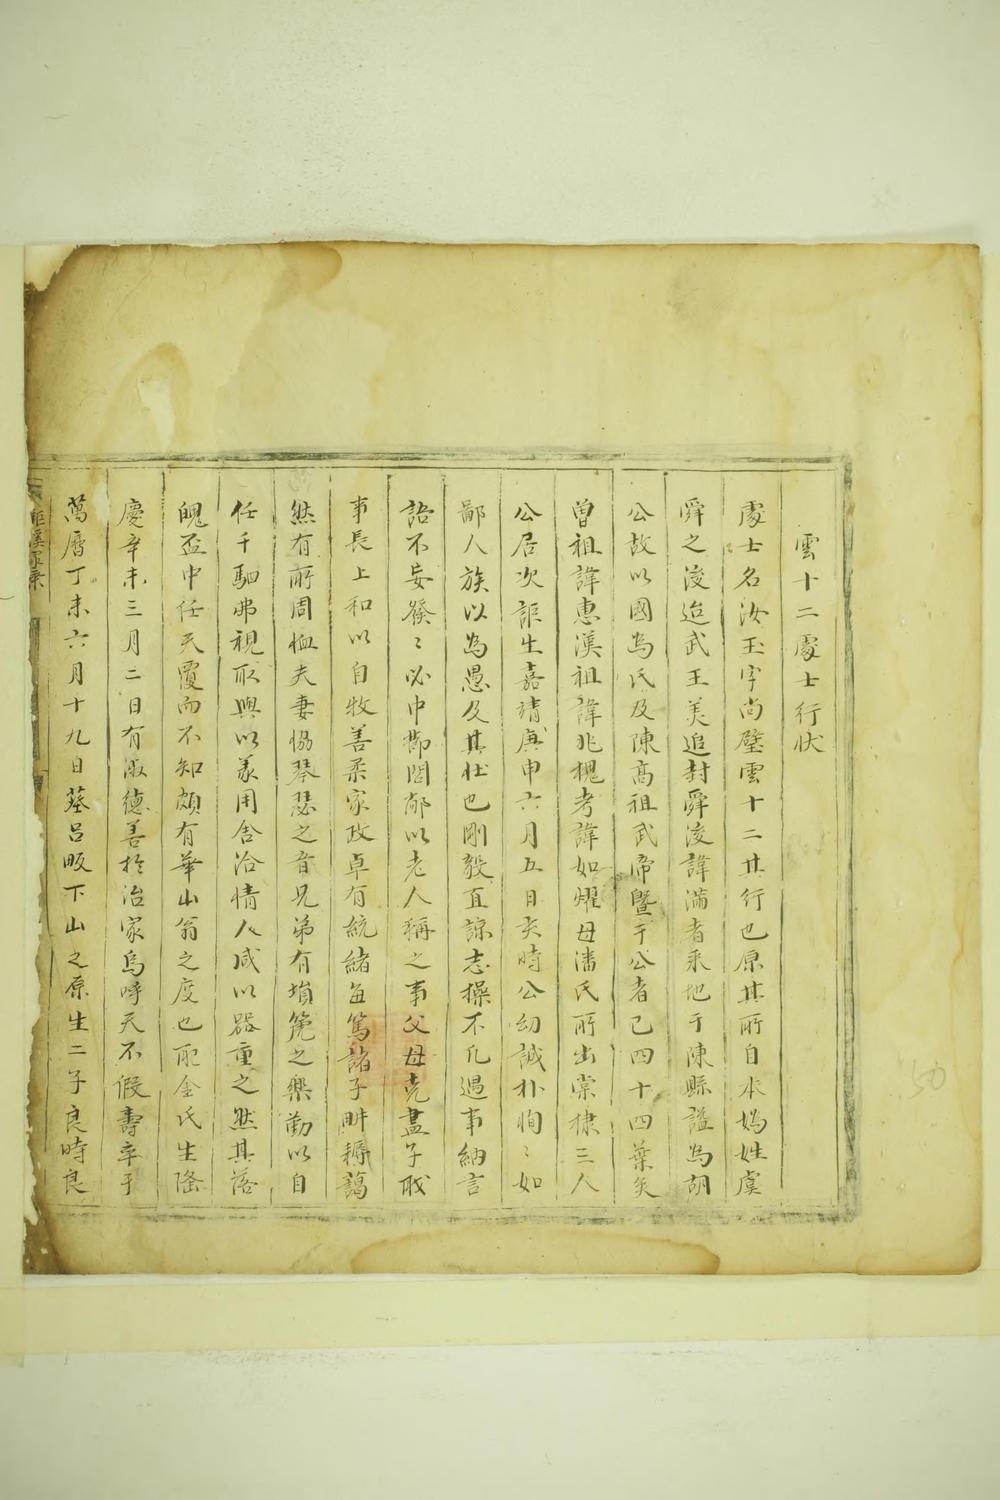 雲十二處士行狀
處士名汝玉字尚璧雲十二其行也原其所自本媯姓虞
舜之後迨武王美追封舜後諱滿者采地于陳縣謚為胡
公故以國為氏及陳高祖武帝暨于公者已四十四葉矣
曾祖諱惠溪祖諱兆槐考諱如燿母潘氏所出棠棣三人
公居次詎生嘉靖庚申六月五日亥時公幼誠朴恂〻如
鄙人族以為愚及其仕也剛毅直諒志操不凡遇事納言
語不妄發〻必中節閭鄰以老人稱之事父母克盡子職
事長上和以自牧善柔家政卓有統緒每篤諸子畊耨藹
然有所周恤夫妻恊琴瑟之音兄弟有塤箎之樂勤以自
任千駟弗視取與以義用舍洽情人咸以器重之然其落
魄盃中任天覆而不知頗有華山翁之度也配金氏生隆
慶辛未三月二日有淑德善於治家烏呼天不假壽卒于
萬曆丁未六月十九日墓呂畈下山之原生二子良時良
溪家乘